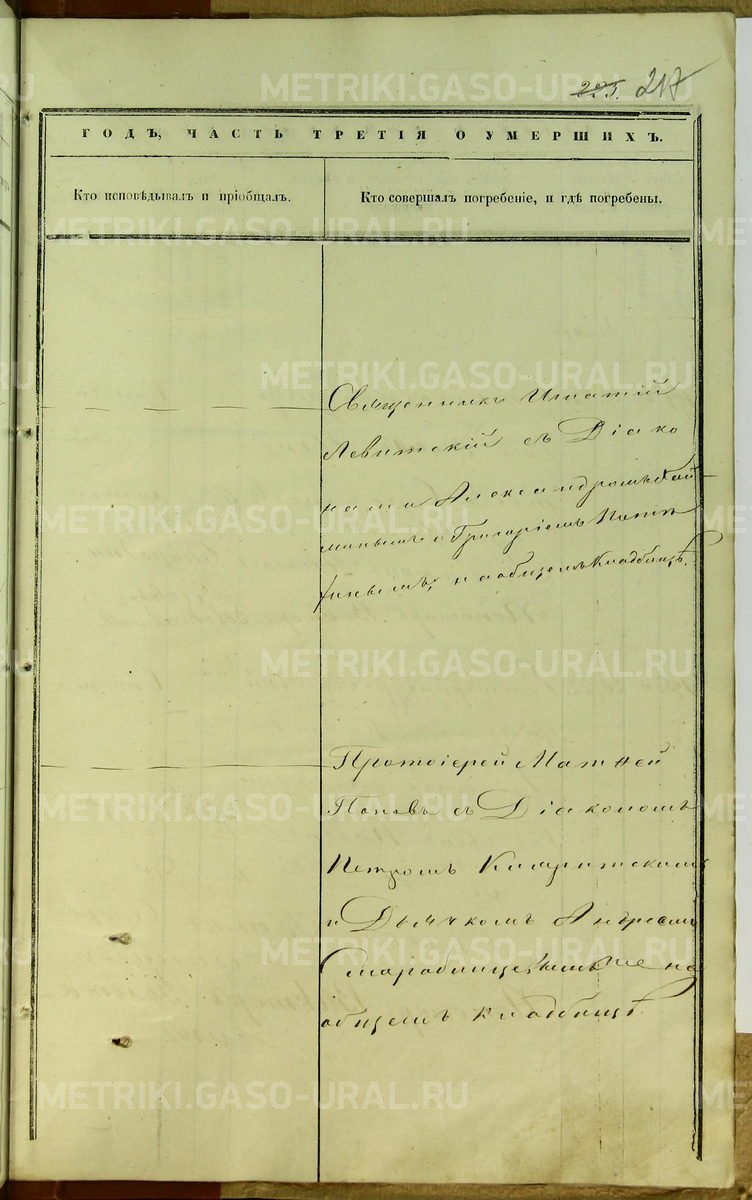 225. 217
ГОДЪ, ЧАСТЬ ТРЕТІЯ О УМЕРШИХЪ.
Кто исповѣдывалъ и пріобщалъ.
Кто совершалъ погребеніе, и гдѣ погребены.
Священникъ Игнатій
Левитскій съ Діако
нами Александромъ
и Григоріемъ
на общемъ кладбищѣ.
Протоіерей Матѳей
Поповъ съ Діакономъ
Петромъ
и Дьячкомъ Андреемъ
на
общемъ кладбищѣ.
METRIKI.GASO-URAL.RU